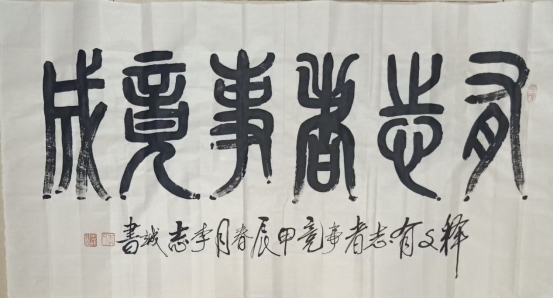 有志者事竟成
释文有志者事竟甲辰春月李志诚书